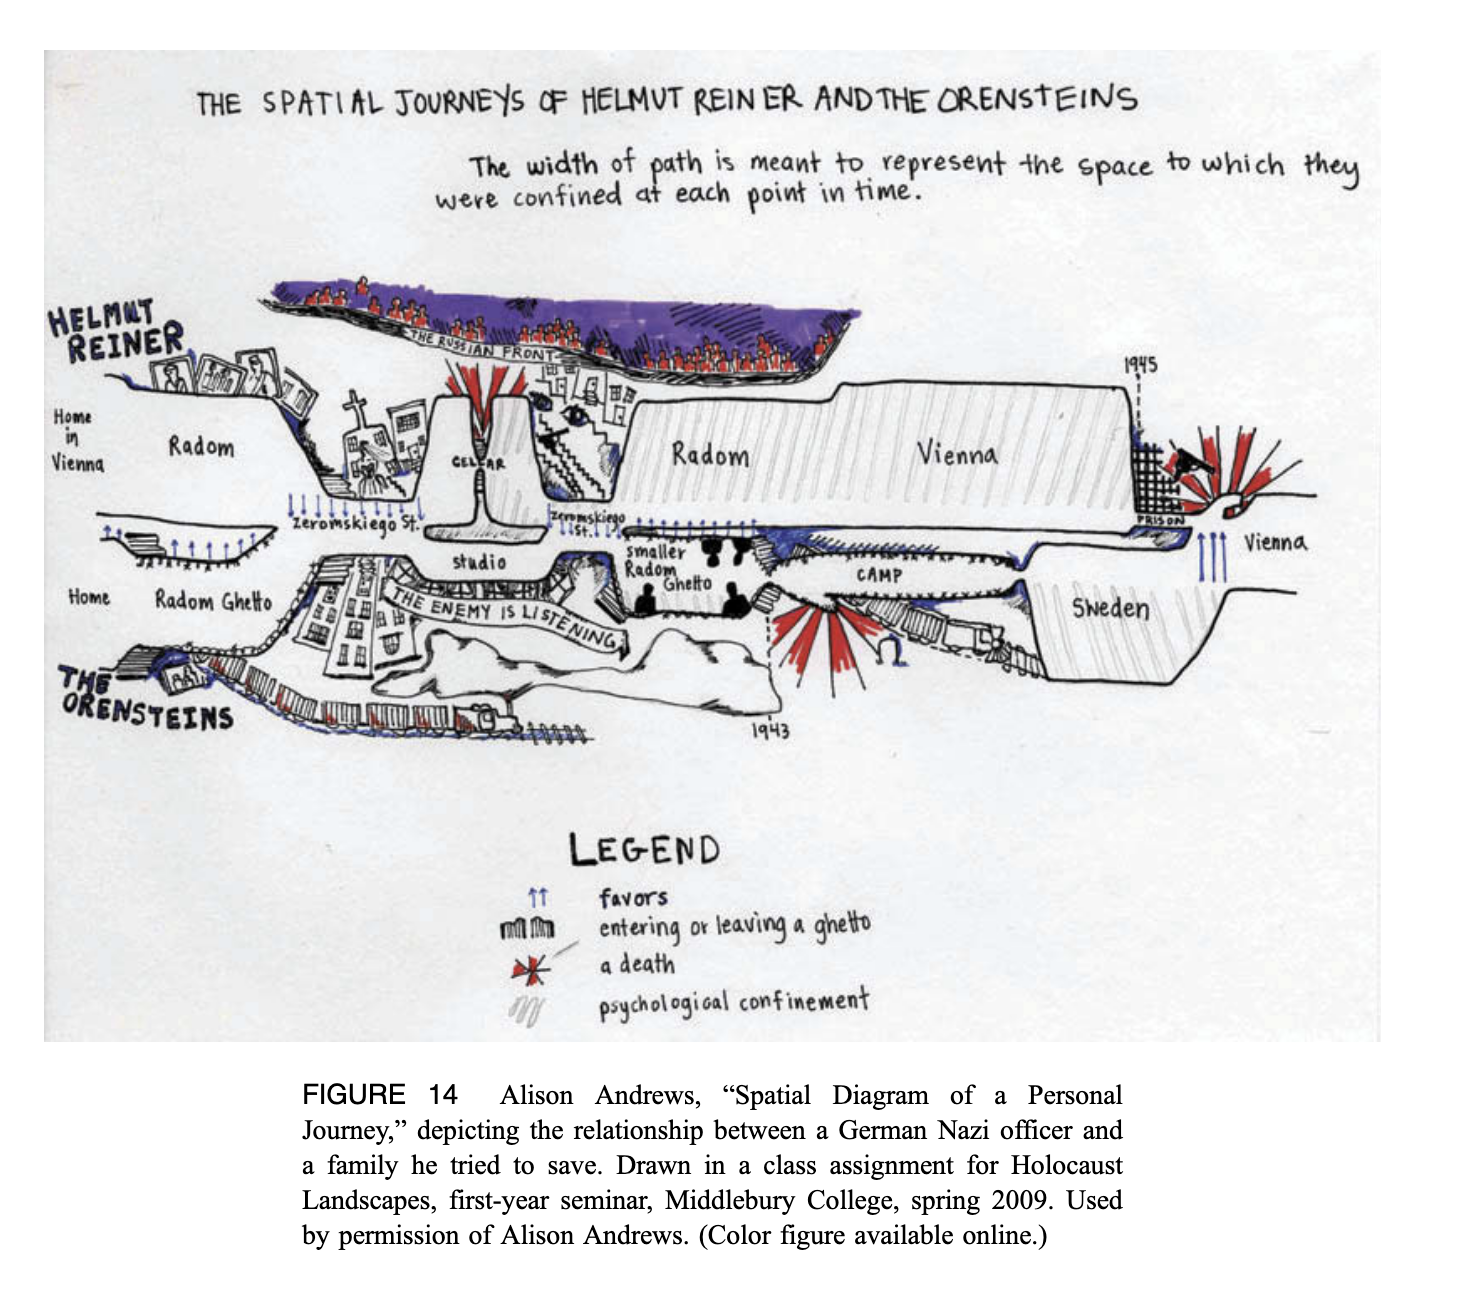 THE SPATIAL JOURNEYS OF HELMUT REINER AND THE ORENSTEINS
The width of path is meant to represent the space to which they
were confined at each point in time.
HELMUT
REINER
THE RUSSIAN FRONT
1945
Home
in
Vienna
Radom
CELLAR
Radom
Vienna
PRISON
zeromskiego St.
zeromskiego
St.
studio
smaller
Radom
Ghetto
CAMP
Vienna
Home
Radom Ghetto
THE ENEMY IS LISTENING
Sweden
THE
ORENSTEINS
1943
LEGEND
favors
entering or leaving a ghetto
a death
psychological confinement
FIGURE 14 Alison Andrews, “Spatial Diagram of a Personal
Journey,” depicting the relationship between a German Nazi officer and
a family he tried to save. Drawn in a class assignment for Holocaust
Landscapes, first-year seminar, Middlebury College, spring 2009. Used
by permission of Alison Andrews. (Color figure available online.)